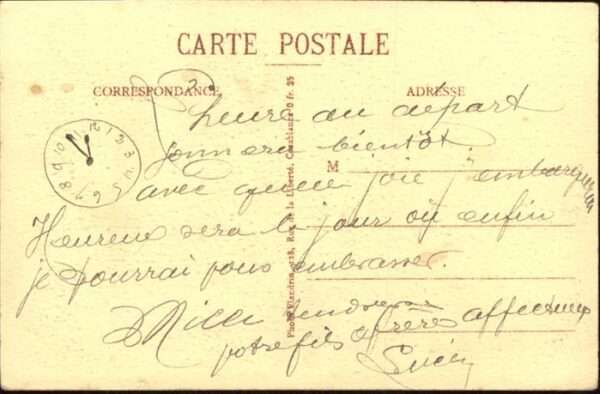 CARTE POSTALE
CORRESPONDANCE
ADRESSE
heure au départ
sonnera bientôt.
M
avec quelle joie j'embarquerai
Heureux sera le jour où enfin
je pourrai vous embrasser.
Mille
votre fils affectueux
Lucien
Photo Flandrin, 218, Rue de la Liberté, Casablanca 0 fr. 25
10 11 12 1 2 3 4 5 6 7 8 9